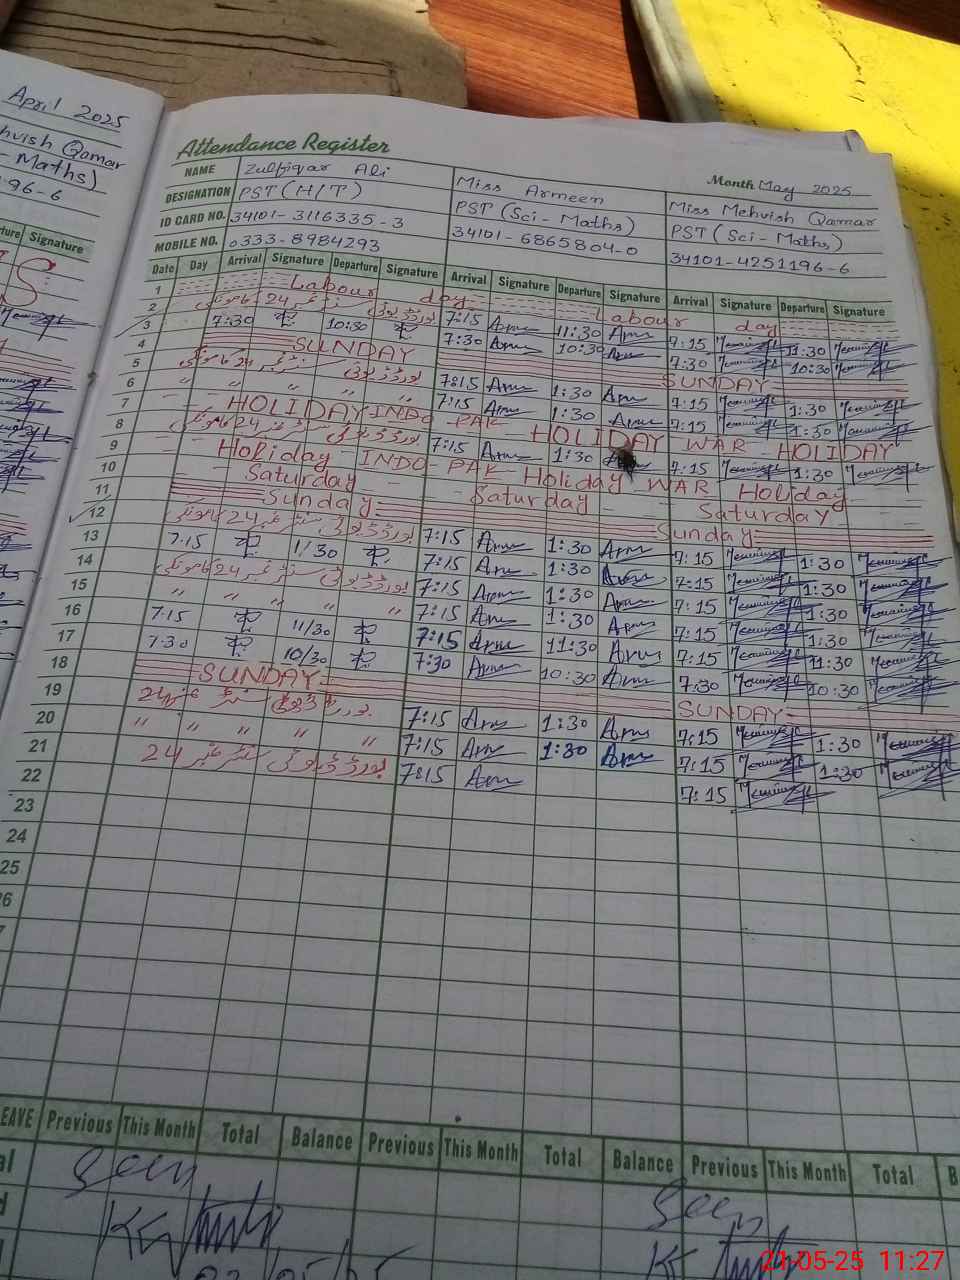 April 2025
Mehvish Qamar
- Maths)
96-6
Signature
Attendance Register
Month May 2025
NAME Zulfiqar Ali Miss Armeen Miss Mehvish Qamar
DESIGNATION PST (H/T) PST (Sci - Maths) PST (Sci - Maths)
ID CARD NO. 34101-3116335-3 34101-6865804-0 34101-4251196-6
MOBILE NO. 0333-8984293
Date Day Arrival Signature Departure Signature Arrival Signature Departure Signature Arrival Signature Departure Signature
1 Labour day Labour day
2 بورڈ ڈیوٹی سنٹر نمبر 24 کامونکی 7:15 Arm 11:30 Arm 7:15 11:30
3 7:30 10:30 7:30 Arm 10:30 Arm 7:30 10:30
4 SUNDAY SUNDAY
5 بورڈ ڈیوٹی سنٹر 24 کامونکی 7:15 Arm 1:30 Arm 7:15 1:30
6 " " " " 7:15 Arm 1:30 Arm 7:15 1:30
7 HOLIDAY INDO - PAK HOLIDAY - WAR - HOLIDAY
8 بورڈ ڈیوٹی سنٹر نمبر 24 کامونکی 7:15 Arm 1:30 Arm 7:15 1:30
9 Holiday - INDO - PAK - Holiday - WAR Holiday
10 Saturday Saturday Saturday
11 Sunday Sunday
12 بورڈ ڈیوٹی سنٹر نمبر 24 کامونکی 7:15 Arm 1:30 Arm 7:15 1:30
13 7:15 1/30 7:15 Arm 1:30 Arm 7:15 1:30
14 بورڈ ڈیوٹی سنٹر نمبر 24 کامونکی 7:15 Arm 1:30 Arm 7:15 1:30
15 " " " " " 7:15 Arm 1:30 Arm 7:15 1:30
16 7:15 11/30 7:15 Arm 11:30 Arm 7:15 11:30
17 7:30 10/30 7:30 Arm 10:30 Arm 7:30 10:30
18 SUNDAY SUNDAY
19 بورڈ ڈیوٹی سنٹر نمبر 24 7:15 Arm 1:30 Arm 7:15 1:30
20 " " " " " 7:15 Arm 1:30 Arm 7:15 1:30
21 بورڈ ڈیوٹی سنٹر نمبر 24 7:15 Arm 7:15
22
23
24
25
26
7
LEAVE Previous This Month Total Balance Previous This Month Total Balance Previous This Month Total B
Seen Seen
21-05-25 11:27